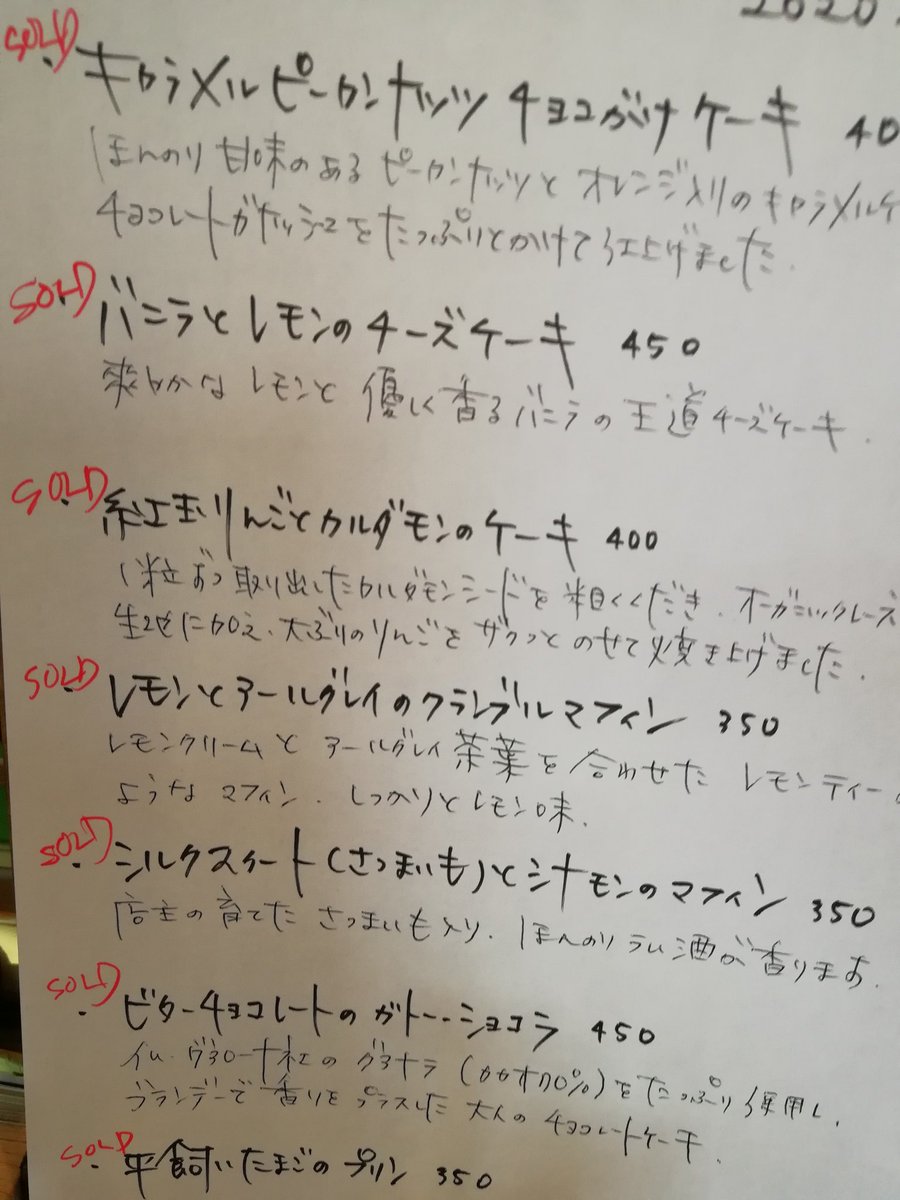 2020.
SOLD
・キャラメルピーカンナッツ チョコがけケーキ 40
ほんのり甘味のあるピーカンナッツとオレンジ入りのキャラメルケ
チョコレートガナッシュをたっぷりとかけて仕上げました.
SOLD
・バニラとレモンのチーズケーキ 450
爽やかなレモンと優しく香るバニラの王道チーズケーキ.
SOLD
・紅玉りんごとカルダモンのケーキ 400
1粒ずつ取り出したカルダモンシードを粗くくだき、オーガニックレーズ
生地に加え、大ぶりのりんごをザクっとのせて焼き上げました.
SOLD
・レモンとアールグレイのクランブルマフィン 350
レモンクリームとアールグレイ茶葉を合わせた レモンティー
ようなマフィン. しっかりとレモン味.
SOLD
・シルクスイート(さつまいも)とシナモンのマフィン 350
店主の育てたさつまいも入り. ほんのりラム酒が香ります.
SOLD
・ビターチョコレートのガトーショコラ 450
仏.ヴァローナ社のグアナラ(カカオ70%)をたっぷり使用し、
ブランデーで香りをプラスした大人のチョコレートケーキ.
SOLD
・平飼いたまごのプリン 350